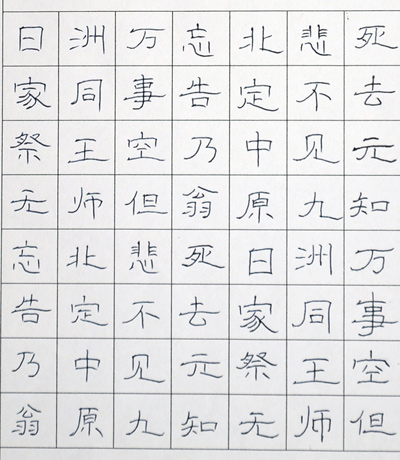 死去元知万事空但
悲不见九洲同王师
北定中原日家祭无
忘告乃翁死去元知
万事空但悲不见九
洲同王师北定中原
日家祭无忘告乃翁